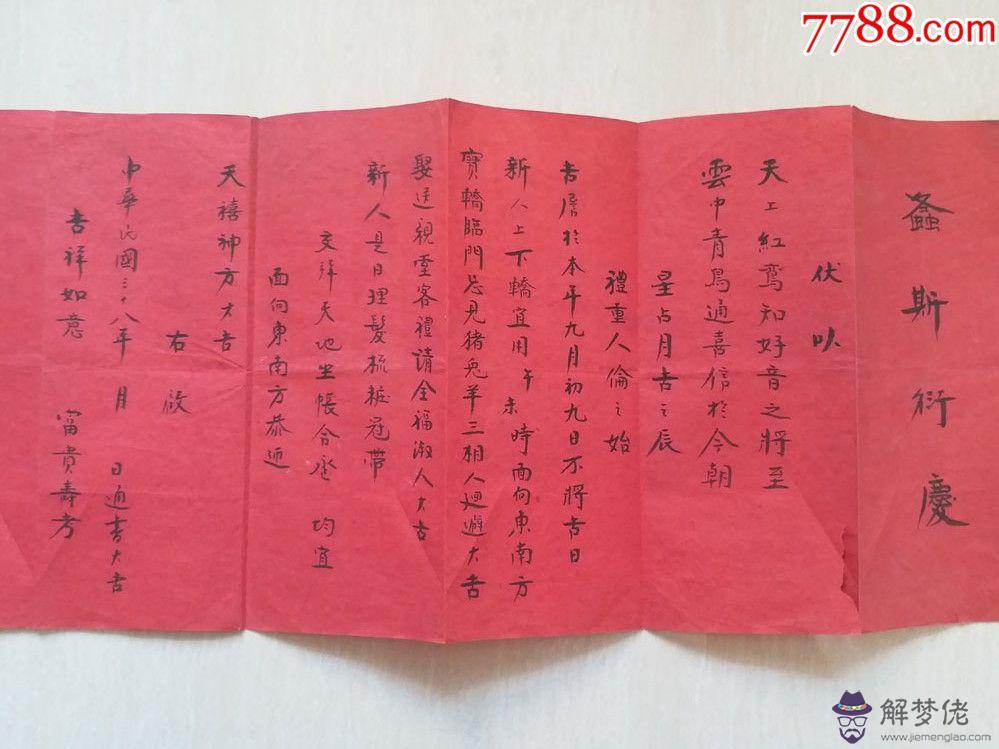 7788.com
螽斯衍慶
伏以
天上紅鸞知好音之將至
雲中青鳥通喜信於今朝
星占月吉之辰
禮重人倫之始
吉居於本年九月初九日不將吉日
新人上下轎宜用午未時面向東南方
寶轎臨門忌見猪兔羊三相人迴避大吉
娶送親堂客禮請全福淑人大吉
新人是日理髮梳粧冠帶
交拜天地坐帳合巹 均宜
面向東南方恭迎
天禧神方大吉
右啟
中華民國三十八年 月 日通書大吉
吉祥如意 富貴壽考
解梦佬
www.jiemenglao.com